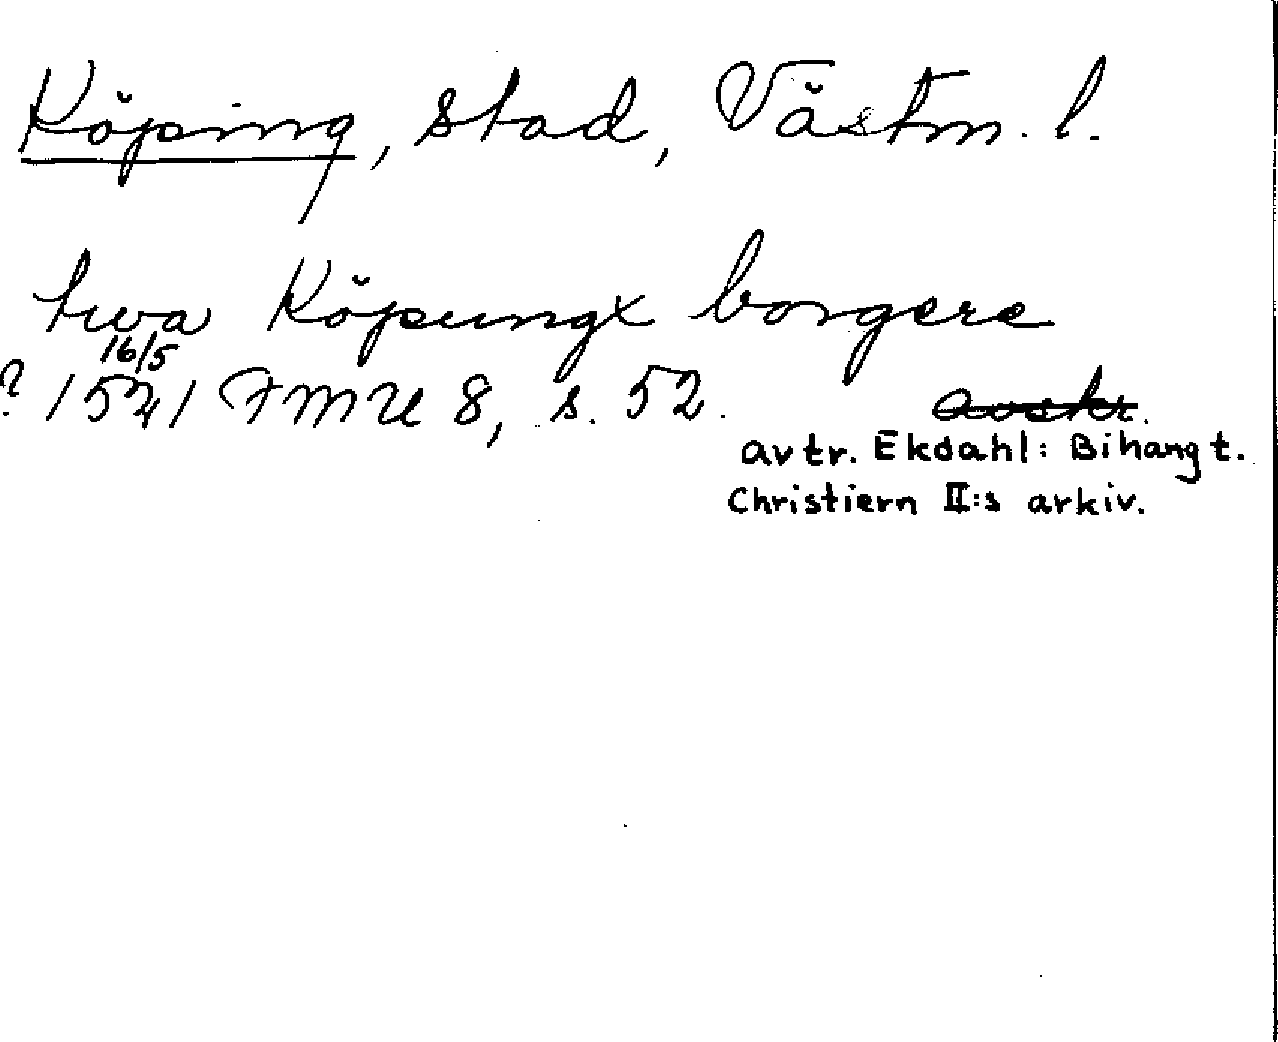 Köping, stad, Västm. l.
twa Köpungx borgere
16/5
? 1521 FMU 8, s. 52. avskr.
avtr. Ekdahl: Bihang t.
Christiern II:s arkiv.